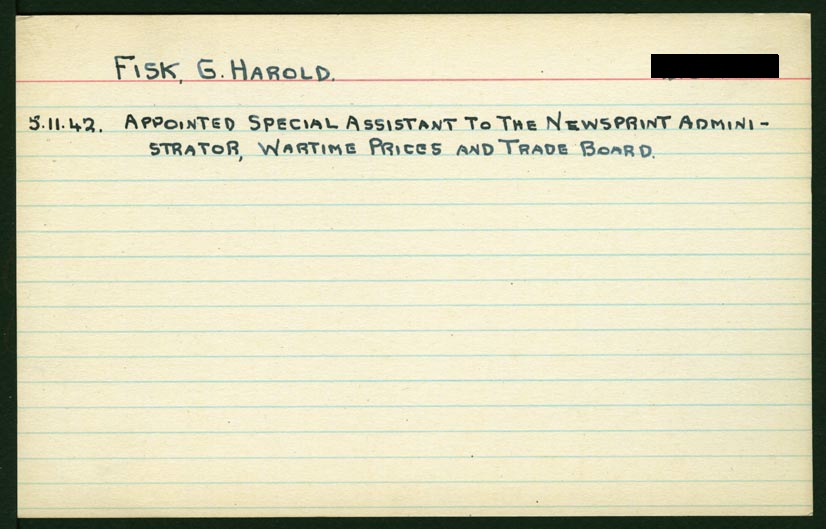 FISK, G. HAROLD.
5.11.42. APPOINTED SPECIAL ASSISTANT TO THE NEWSPRINT ADMINI-
STRATOR, WARTIME PRICES AND TRADE BOARD.